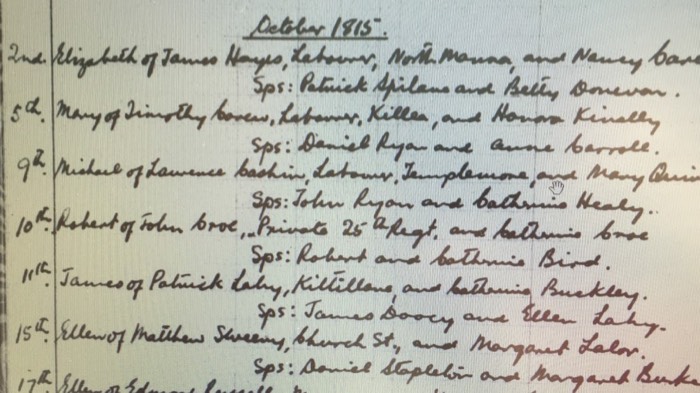 October 1815.
2nd. Elizabeth of James Hayes, Labourer, North Manna, and Nancy
Sps: Patrick Spilane and Betty Donevan.
5th. Mary of Timothy Carew, Labourer, Killea, and Honora Kinally
Sps: Daniel Ryan and Anne Carroll.
9th. Michael of Lawrence Cashin, Labourer, Templemore, and Mary Quin
Sps: John Ryan and Catherine Healy.
10th. Robert of John Croc, Private 25th Regt, and Catherine Croc
Sps: Robert and Catherine Bird.
11th. James of Patrick Lahy, Kiltillane, and Catherine Buckley.
Sps: James Doocy and Ellen Lahy.
15th. Ellen of Matthew Sweeny, Church St., and Margaret Lalor.
Sps: Daniel Stapleton and Margaret Burke
17th Ellen of Edmund Russell,